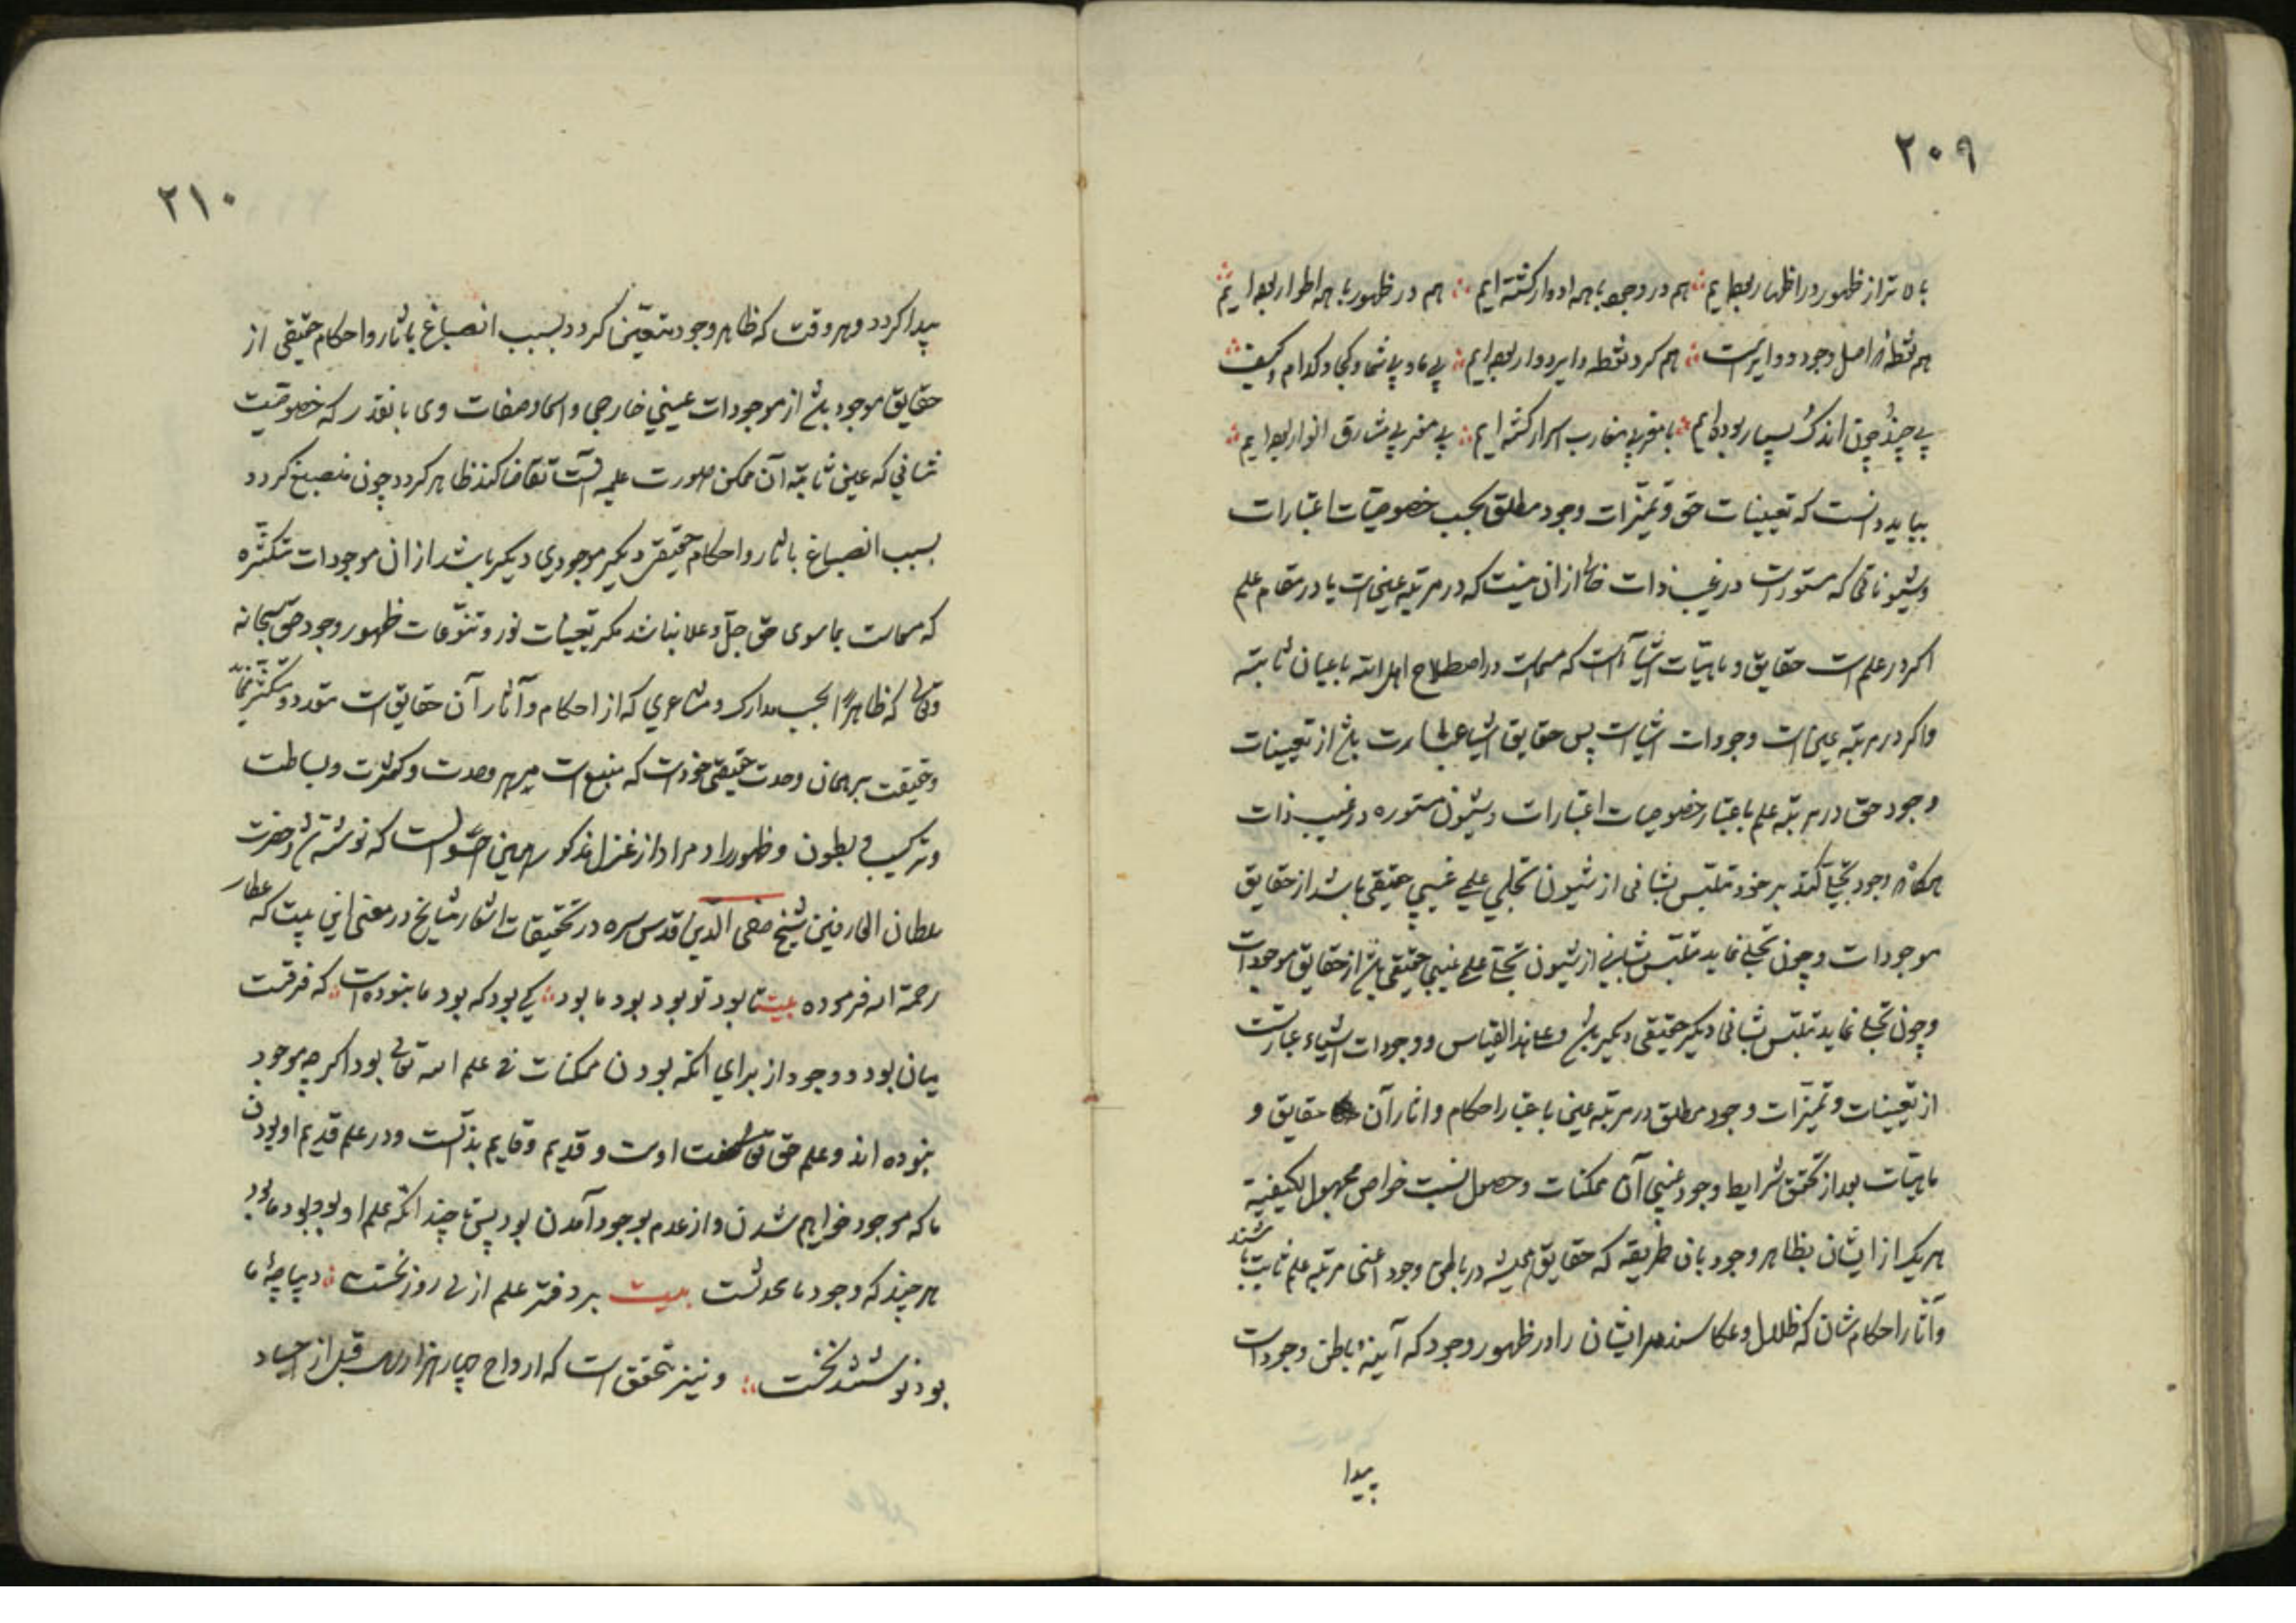 ۲۰۹
تر از ظهور در اظهار بوده ایم ∴ هم در وجود با همه ادوار گشته ایم ∴ هم در ظهور با همه اطوار بوده ایم
هم نقطه اصل وجود دوایرست ∴ هم کرد نقطه دایره دوار بوده ایم ∴ بی ما و بی شما و کجا و کدام و کیف
بی چند و چون اندک بسیار بوده ایم ∴ مغارب اسرار گشته ایم ∴ مشارق انوار بوده ایم ∴
بباید دانست که تعینات حق و تمیزات وجود مطلق بحسب خصوصیات اعتبارات
و شیوناتی که مستورست در غیب ذات خالی از ان نیست که در مرتبه عین است یا در مقام علم
اکر در علم است حقایق و ماهیات اشیا است که مسماست در اصطلاح اهل الله باعیان ثابته
و اکر در مرتبه عین است وجودات اشیاست پس حقایق اشیا عبارت باشد از تعینات
وجود حق در مرتبه علم باعتبار خصوصیات اعتبارات و شیون مستوره در غیب ذات
هرگاه وجود تجلی کند بر خود متلبس بشانی از شیون تجلی علمی غیبی حقیقتی باشد از حقایق
موجودات و چون تجلی نماید متلبس بشانی از شیون تجلی علمی غیبی حقیقتی باشد از حقایق موجودات
و چون تجلی نماید متلبس بشانی دیکر حقیقتی دیکر باشد و علی هذا القیاس و وجودات اشیاء عبارتست
از تعینات و تمیزات وجود مطلق در مرتبه عین باعتبار احکام و اثار آن حقایق و
ماهیات بعد از تحقق شرایط وجود عینی آن ممکنات و حصول نسبت خواص مجهول الکیفیة
هر یک از ایشان بظاهر وجود بان طریقه که حقایق همیشه در باطن وجود اعنی مرتبه علم ثابت باشند
و آثار احکام شان که ظلال و عکاسند مر ایشان را در ظهور وجود که آیینه باطن وجود است
پیدا
۲۱۰
پیدا کردد و هر وقت که ظاهر وجود متعین کردد بسبب انصباغ باثار و احکام حقیقتی از
حقایق موجود باشد از موجودات عینی خارجی و اسما و صفات وی بانقدر که خصوصیت
نشانی که عین ثابته آن ممکن صورت علمیه آنست تقاضا کند ظاهر کردد چون منصبغ کردد
بسبب انصباغ باثار و احکام حقیقتی دیکر موجودی دیکر باشد از ان موجودات متکثره
که مسماست بما سوی حق جل و علا نباشد مکر تعینات نور و تنوعات ظهور وجود حق سبحانه
و تعالی که ظاهرا بحسب مدارک و مشاعری که از احکام و آثار آن حقایق است متعدد و متکثر نماید
و حقیقت بر همان وحدت حقیقی خود است که منبع است مر هر وحدت و کثرت و بساطت
و ترکیب و بطون و ظهور را و مراد از غزل مذکور همین است که نوشته شد و حضرت
سلطان العارفین شیخ صفی الدین قدس سره در تحقیقات اشعار مشایخ در معنی این بیت که عطار
رحمة الله فرموده بیت تا بود تو بود بود ما بود ∴ کی بود که بود ما نبوده است ∴ که فرقست
میان بود و وجود از برای انکه بودن ممکنات فی علم الله تعالی بود اکر چه موجود
نبوده اند و علم حق تعالی صفت اوست و قدیم و قایم بذاتست و در علم قدیم او بودن
ما که موجود خواهیم شدن و از عدم بوجود آمدن بود پس تا چند انکه علم او بود بود ما بود
هر چند که وجود ما محدثست بیت بر دفتر علم ازلی روز نخست ∴ دیباچهٔ ما
بود نوشتند نخست ∴ و نیز تحقق است که ارواح چهار هزار سال قبل از اجساد